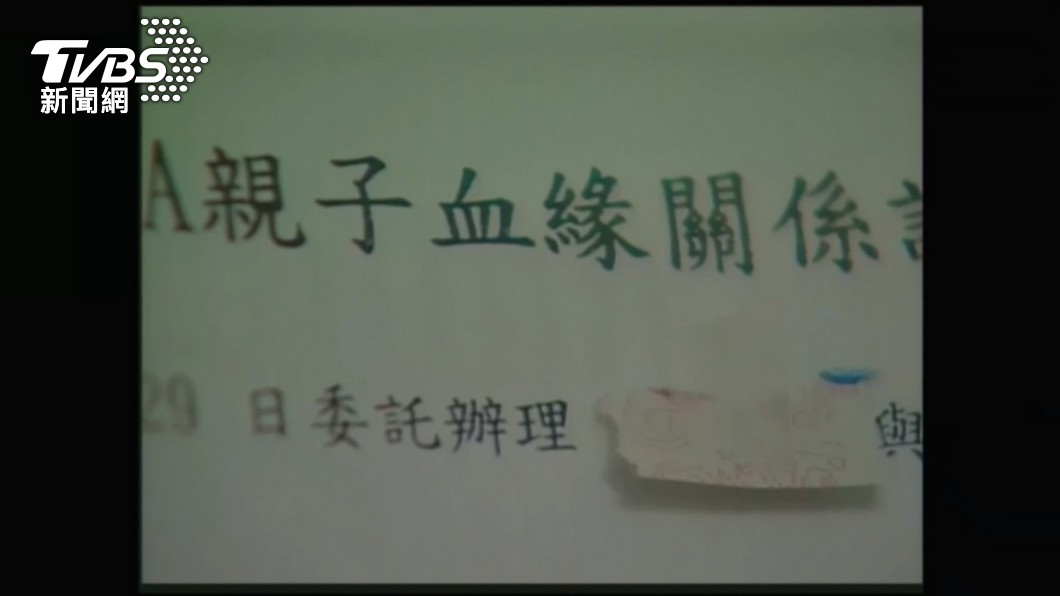 TVBS
新聞網
A親子血緣關係
29 日委託辦理 與